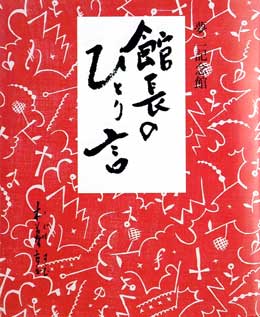 夢二記念館
館長の
ひとり言